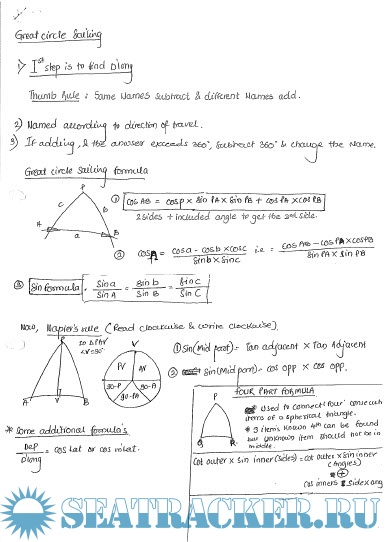 Great circle Sailing
1) Ist step is to find Dlong
Thumb Rule : Same Names subtract & different Names add.
2) Named according to direction of travel.
3) If adding, & the answer exceeds 360°, subtract 360° & change the Name.
Great circle Sailing formula
P
c
b
A
a
B
① cos AB = cos P × sin PA × sin PB + cos PA × cos PB
2 sides + included angle to get the 3rd side.
② cos A = cos a - cos b × cos c / sin b × sin c i.e = cos AB - cos PA × cos PB / sin PA × sin PB
③ Sin formula. Sin a / Sin A = sin b / Sin B = sin c / Sin C
Now, Napier's rule (Read clockwise & write clockwise)
P
A
V
B
in ΔPAV
∠V=90°
PV
AV
90-P
90-A
90-PA
① Sin(Mid part) = Tan adjacent × Tan Adjacent
② sin(Mid part) = cos opp × cos opp.
* Some additional formula's
Dep / Dlong = cos lat or cos m'lat.
FOUR PART FORMULA
P
A
B
* Used to connect 'four' consecu
items of a spherical triangle.
* 3 items known 4th can be found
but unknown item should not be in
middle.
Cot outer × sin inner (sides) = cot outer × sin inner
(angles)
+
cos inners
SEATRACKER.RU